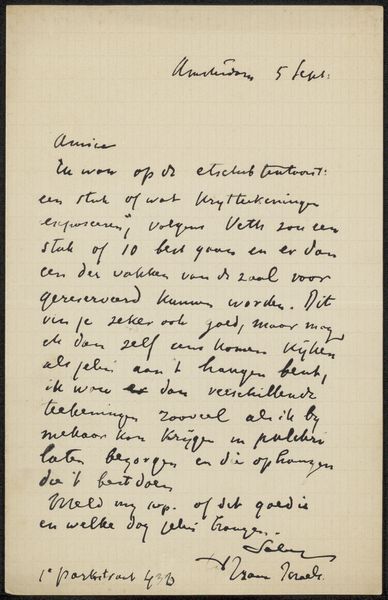 Amsterdam 5 Sept.
Amice
Ik wou op de etsclub tentoonst:
een stuk of wat Kryttekeningen
exposeeren, volgens Veth zou een
stuk of 10 best gaan en er dan
een der vakken van de zaal voor
gereserveerd kunnen worden. Dit
vin je zeker ook goed, maar mag
ik dan zelf eens komen kijken
als jelui aan 't hangen bent,
ik wou dan verschillende
teekeningen zooveel als ik by
mekaar kan krijgen in pulchri
laten bezorgen en die ophangen
die 't best doen
Meld my op. of dit goed is
en welke dag jelui hangen.
Salut
Isaac Israels
1e Parkstraat 436